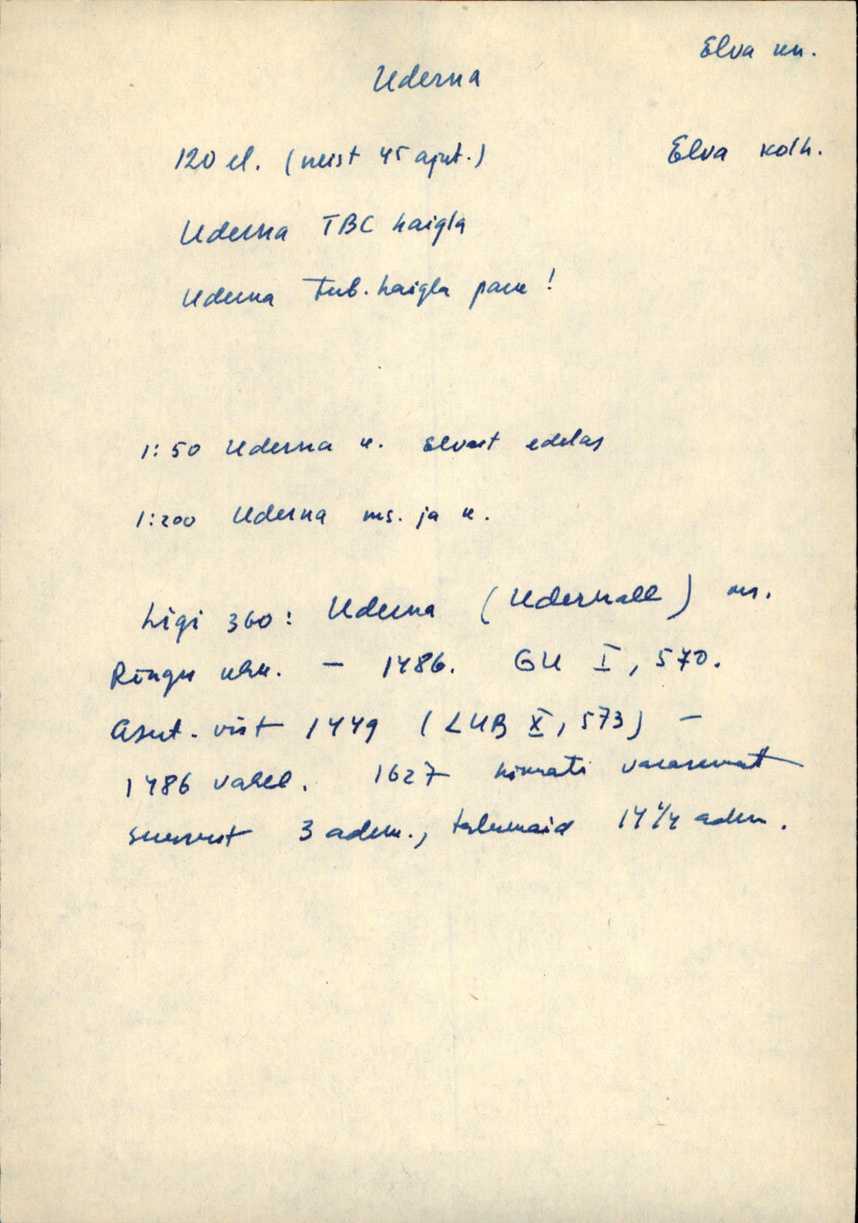 Elva kn.
Uderna
120 el. (neist 45 ajut.)
Elva kolh.
Uderna TBC haigla
Uderna Tub. haigla park!
1:50 Uderna k. Elvast edelas
1:200 Uderna ms. ja k.
Ligi 360: Uderna (Udernall) m.
Rõngu khk. – 1486. GU I, 570.
Asut. vist 1449 (LUB X, 573) –
1486 vahel. 1627 hinnati varasemat
suurust 3 adm., talumaid 14 1/4 adm.